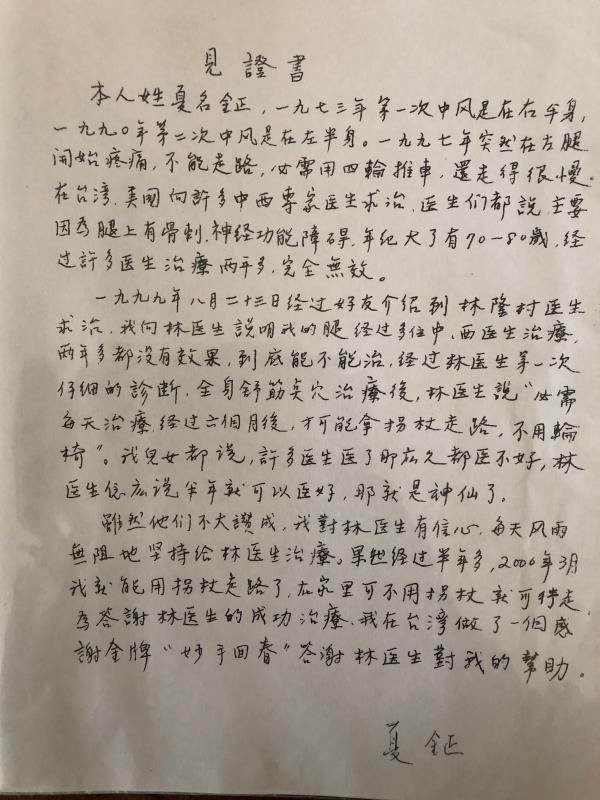 見證書
本人姓夏名鉦，一九七三年第一次中风是在右半身，
一九九〇年第二次中风是在左半身。一九九七年突然在左腿
開始疼痛，不能走路，必需用四輪推車，還走得很慢。
在台湾、美國向許多中西專家医生求治，医生们都說，主要
因为腿上有骨刺，神经功能障碍，年纪大了有70－80歲，经
过許多医生治療两年多，完全無效。
一九九九年八月二十三日经过好友介绍到林隆村医生
求治，我向林医生説明我的腿经过多位中、西医生治療，
两年多都没有效果，到底能不能治，经过林医生第一次
仔细的診断，全身舒筋点穴治療後，林医生說“必需
每天治療，经过六個月後，才可能拿拐杖走路，不用輪
椅”。我兒女都说，許多医生医了那広久都医不好，林
医生怎広说半年就可以医好，那就是神仙了。
雖然他们不大讚成，我對林医生有信心，每天风雨
無阻地坚持给林医生治療。果然经过半年多，2000年3月
我就能用拐杖走路了，在家里可不用拐杖就可行走
为答謝林医生的成功治療，我在台湾做了一個感
謝金牌“妙手回春”答谢林医生對我的幫助。
夏鉦